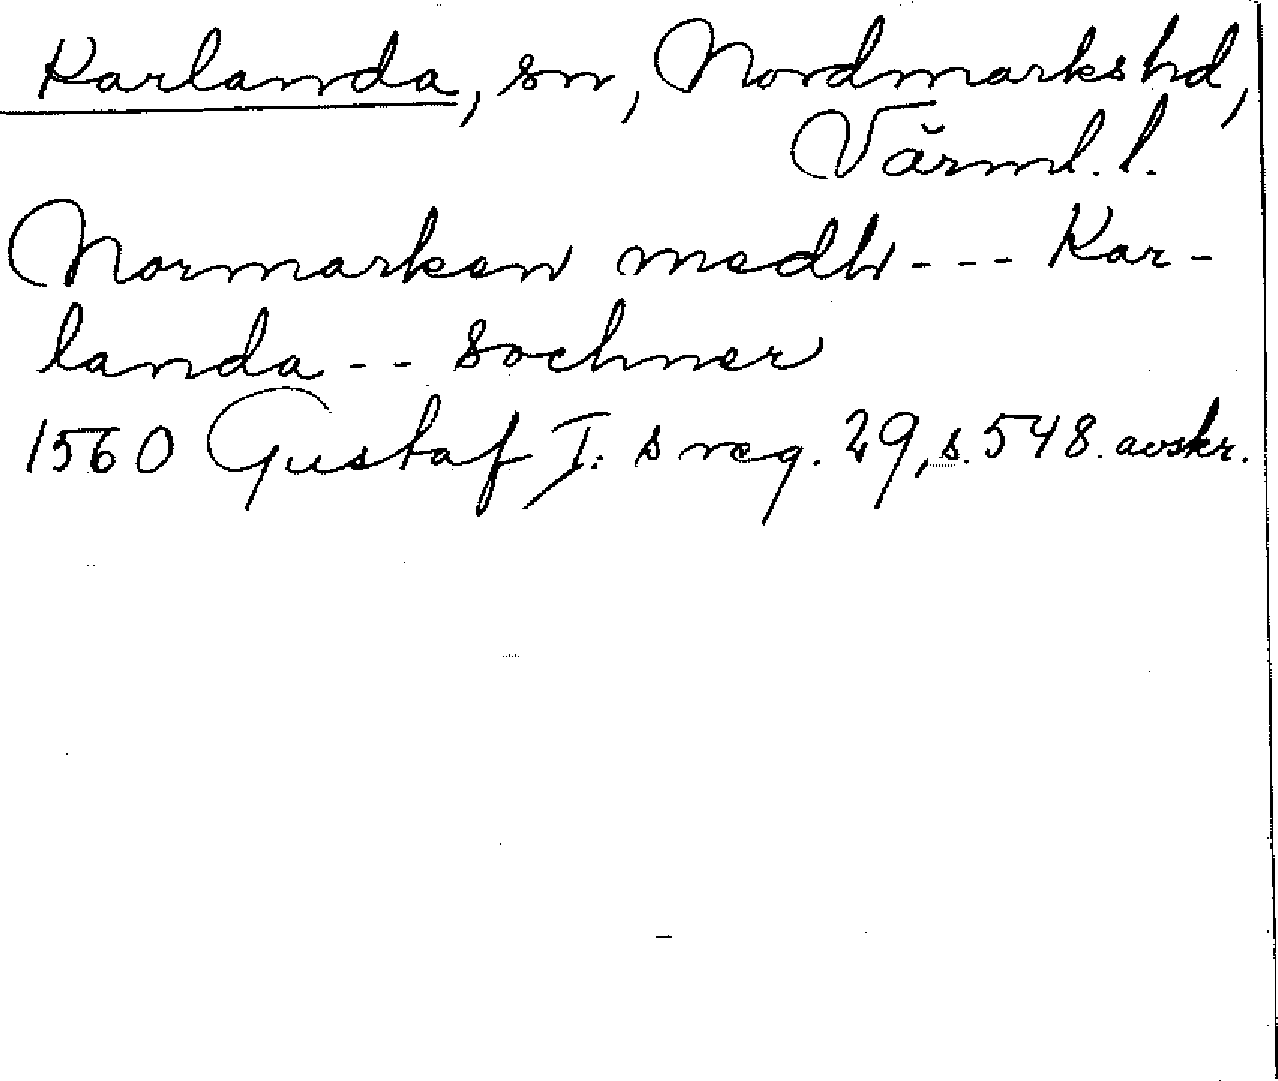 Karlanda, sn, Nordmarkshd,
Värml. l.
Normarken medh - - - Kar-
landa - - sochner
1560 Gustaf I: s reg. 29, s. 548. avskr.